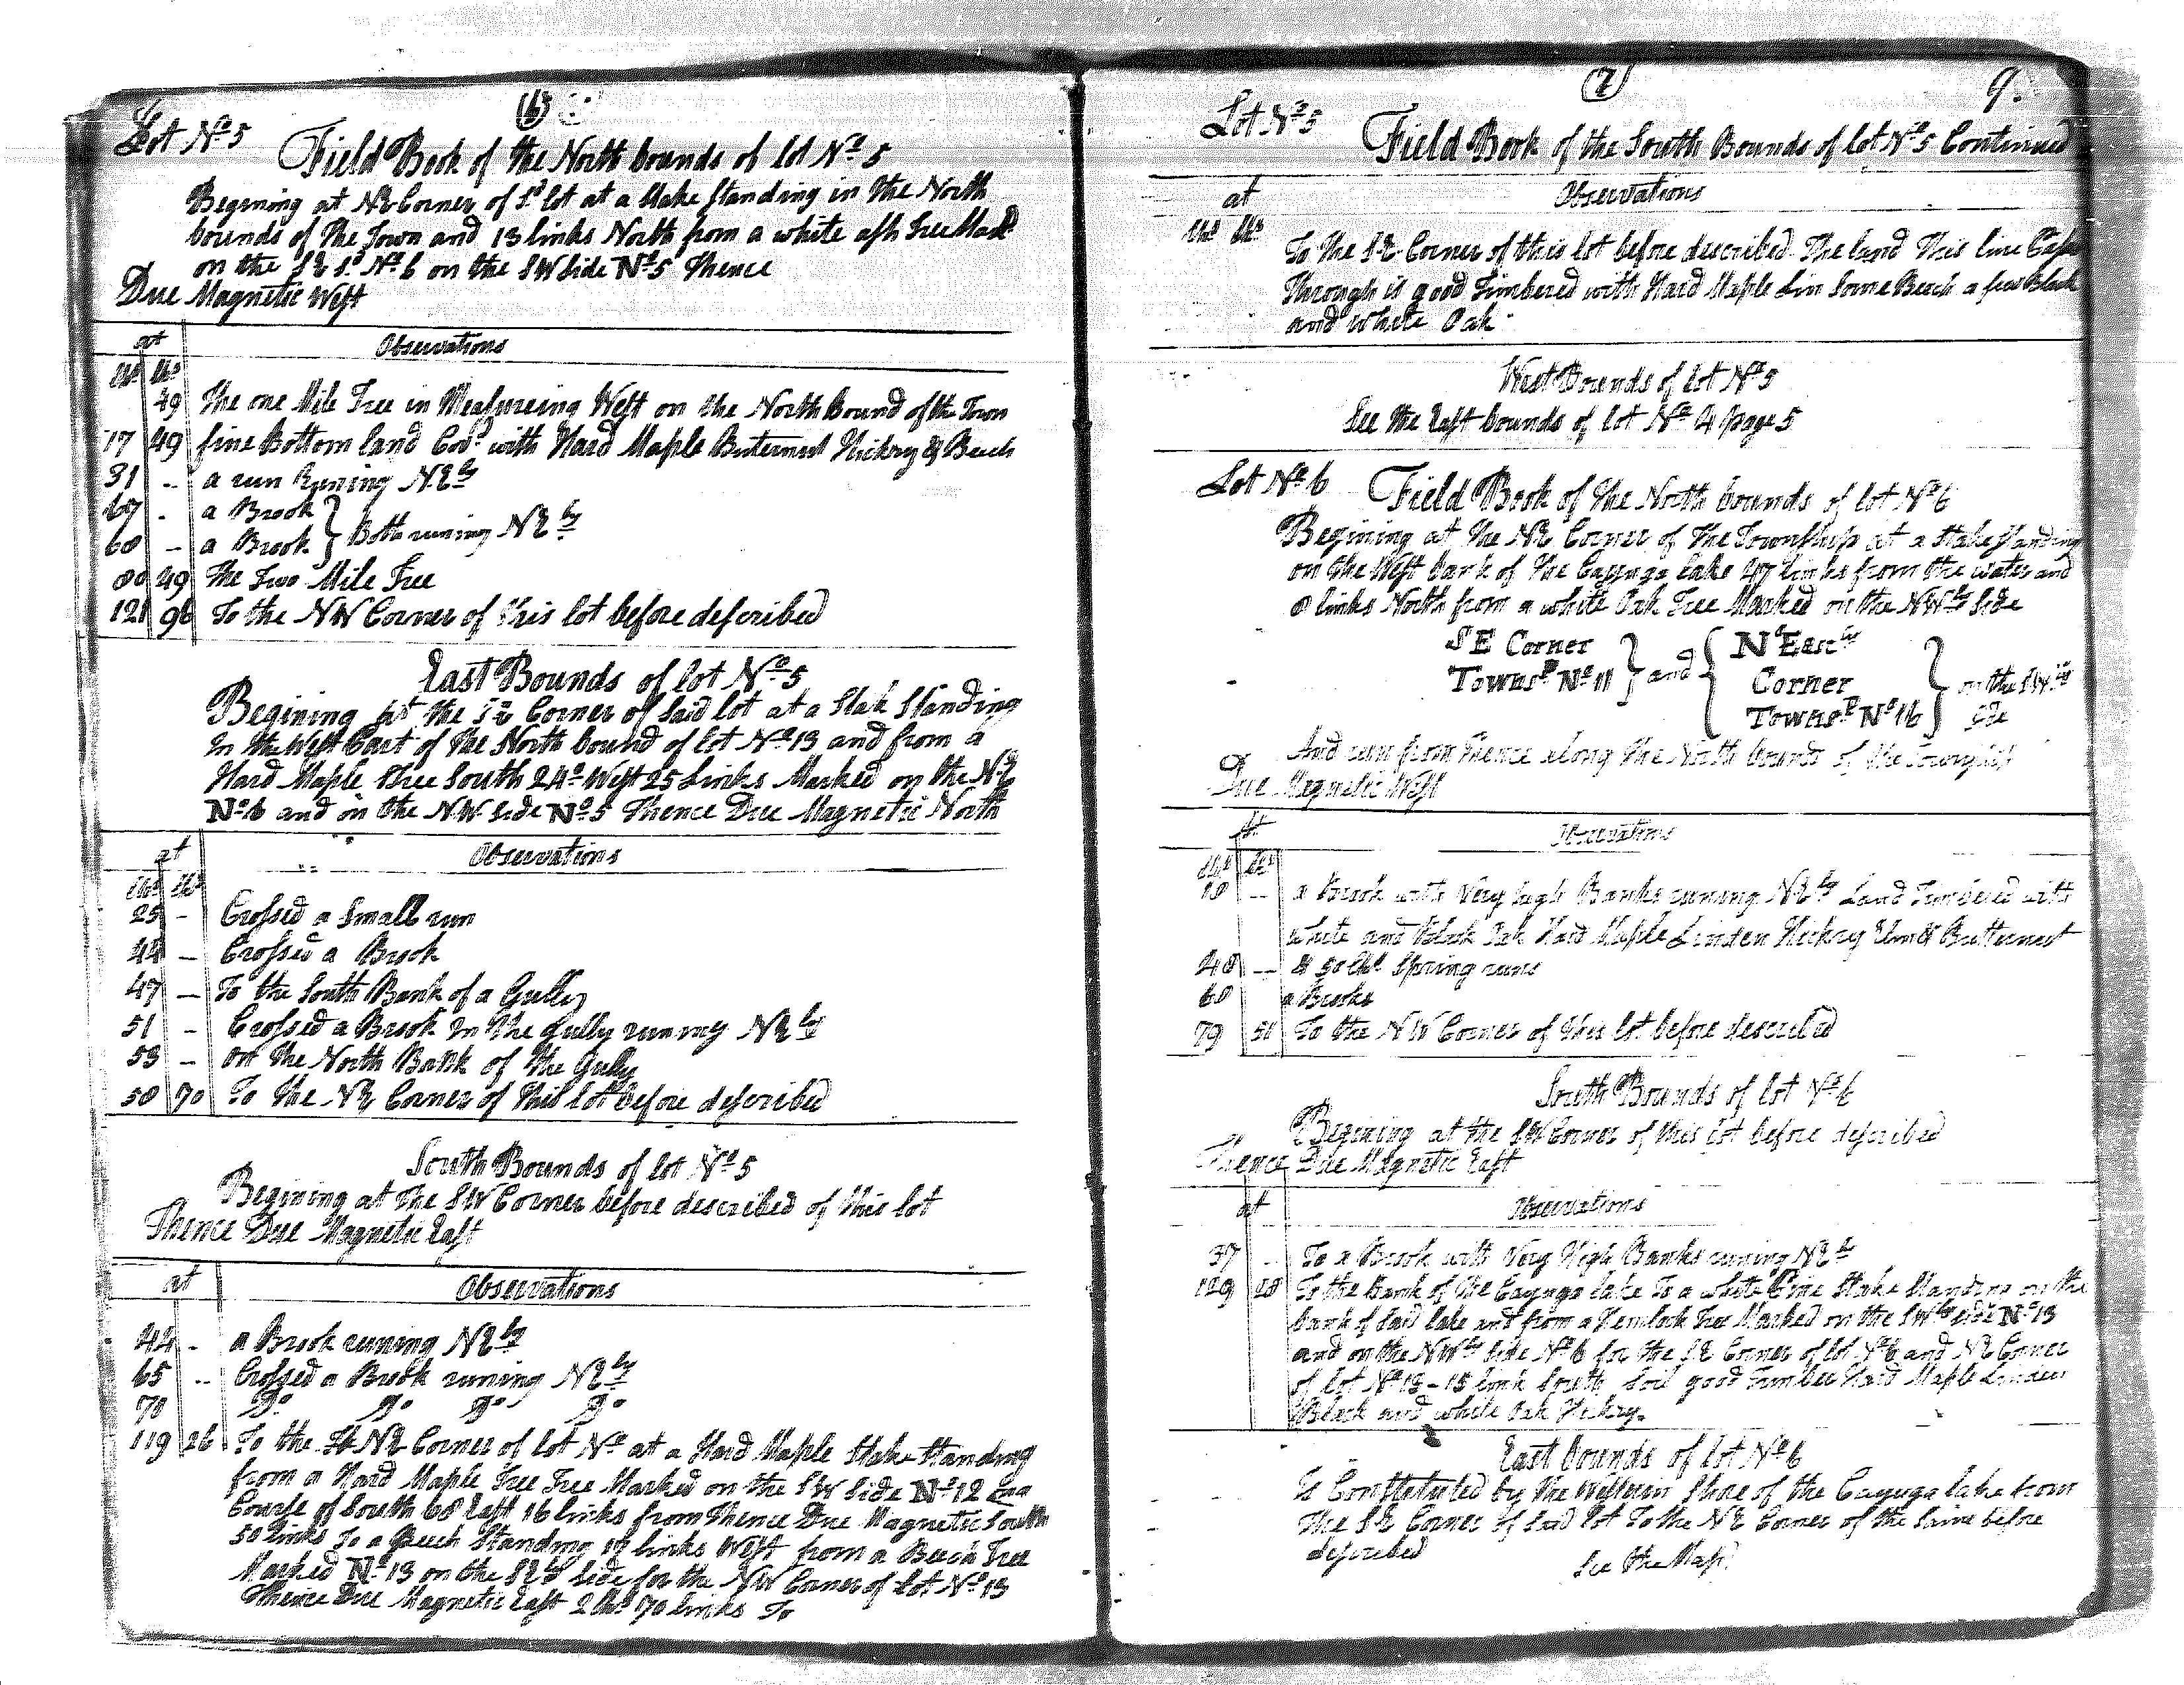 (6)
Lot Nº 5
Field Book of the North bounds of lot Nº 5
Begining at NE Corner of Sd lot at a Stake Standing in the North
bounds of the Town and 13 links North from a white ash Tree Mark'd
on the SE Sd Nº 6 on the SW Side Nº 5 Thence
Due Magnetic West
at Observations
Chs Lks
49 The one Mile Tree in Measureing West on the North Bound of the Town
17 49 fine Bottom land Cov.d with Hard Maple Buternut Hickry & Beech
31 -- a run Runing NEly
67 - a Brook
60 - a Brook } Both runing NEly
80 49 The Two Mile Tree
121 96 To the NW Corner of this lot before described
East Bounds of lot Nº 5
Begining at the SE Corner of Said lot at a Stak Standing
in the West Part of the North bound of lot Nº 13 and from a
Hard Maple Tree South 24º West 25 Links Marked on the NE
Nº 6 and on the NW Side Nº 5 Thence Due Magnetic North
at Observations
Chs Lks
25 - Crossed a Small run
44 - Crossed a Brook
47 - To the South Bank of a Gully
51 - Crossed a Brook in the Gully runing NEly
53 - on the North Bank of the Gully
58 70 To the NE Corner of this lot before described
South Bounds of lot Nº 5
Begining at the SW Corner before described of this lot
Thence Due Magnetic East
at Observations
44 - a Brook runing NEly
65 -- Crossed a Brook runing NEly
70 Dº Dº Dº Dº
119 26 To the NE Corner of lot Nº at a Hard Maple Stake Standing
from a Hard Maple Tree Tree Marked on the SW Side Nº 12 on a
Course of South 60 East 16 links from Thence Due Magnetic South
50 links To a Beech Standing 17 links West from a Beech Tree
Marked Nº 13 on the SEly Side for the NW Corner of Lot Nº 13
Thence Due Magnetic East 2 Chs 70 links To
(7)
9.
Lot Nº 5
Field Book of the South Bounds of lot Nº 5 Continued
at Observations
Chs Lks
To the SE Corner of this lot before described The land This line
Through is good Timbered with Hard Maple Lin Some Beech a few Black
and white Oak
West Bounds of lot Nº 5
See the East bounds of lot Nº 4 page 5
Lot Nº 6
Field Book of the North bounds of lot Nº 6
Begining at the NE Corner of the Township at a Stake Standing
on the West bank of the Cayuga lake 47 links from the water and
8 links North from a white Oak Tree Marked on the NWly Side
SE Corner
Townsp Nº 11 } and { N Eas
Corner
Townsp Nº 16 } on the SWly
Side
And run from thence along the North bounds of the Township
Due Magnetic West
at Observations
Chs Lks
10 -- a Brook with Very high Banks runing NEly Land Timbered with
white and Black Oak Hard Maple Linden Hickry Elm & Butternut
40 -- & 50 Chs Spring runs
60 a Brooke
79 51 To the NW Corner of this lot before described
South Bounds of lot Nº 6
Begining at the SW Corner of this lot before described
Thence Due Magnetic East
at Observations
37 -- To a Brook with Very High Banks runing NEly
129 28 To the Bank of the Cayuga lake To a white Pine Stake Standing on the
bank of Said lake and from a Hemlock Tree Marked on the SWly Side Nº 13
and on the NWly Side Nº 6 for the SE Corner of lot Nº 6 and NE Corner
of lot Nº 13 - 15 link South Soil good Timber Hard Maple Linden
Black and white Oak Hickry.
East bounds of lot Nº 6
Is Constituted by the Western Shore of the Cayuga lake from
The SE Corner of Said lot To the NE Corner of the Same before
described
See the Map